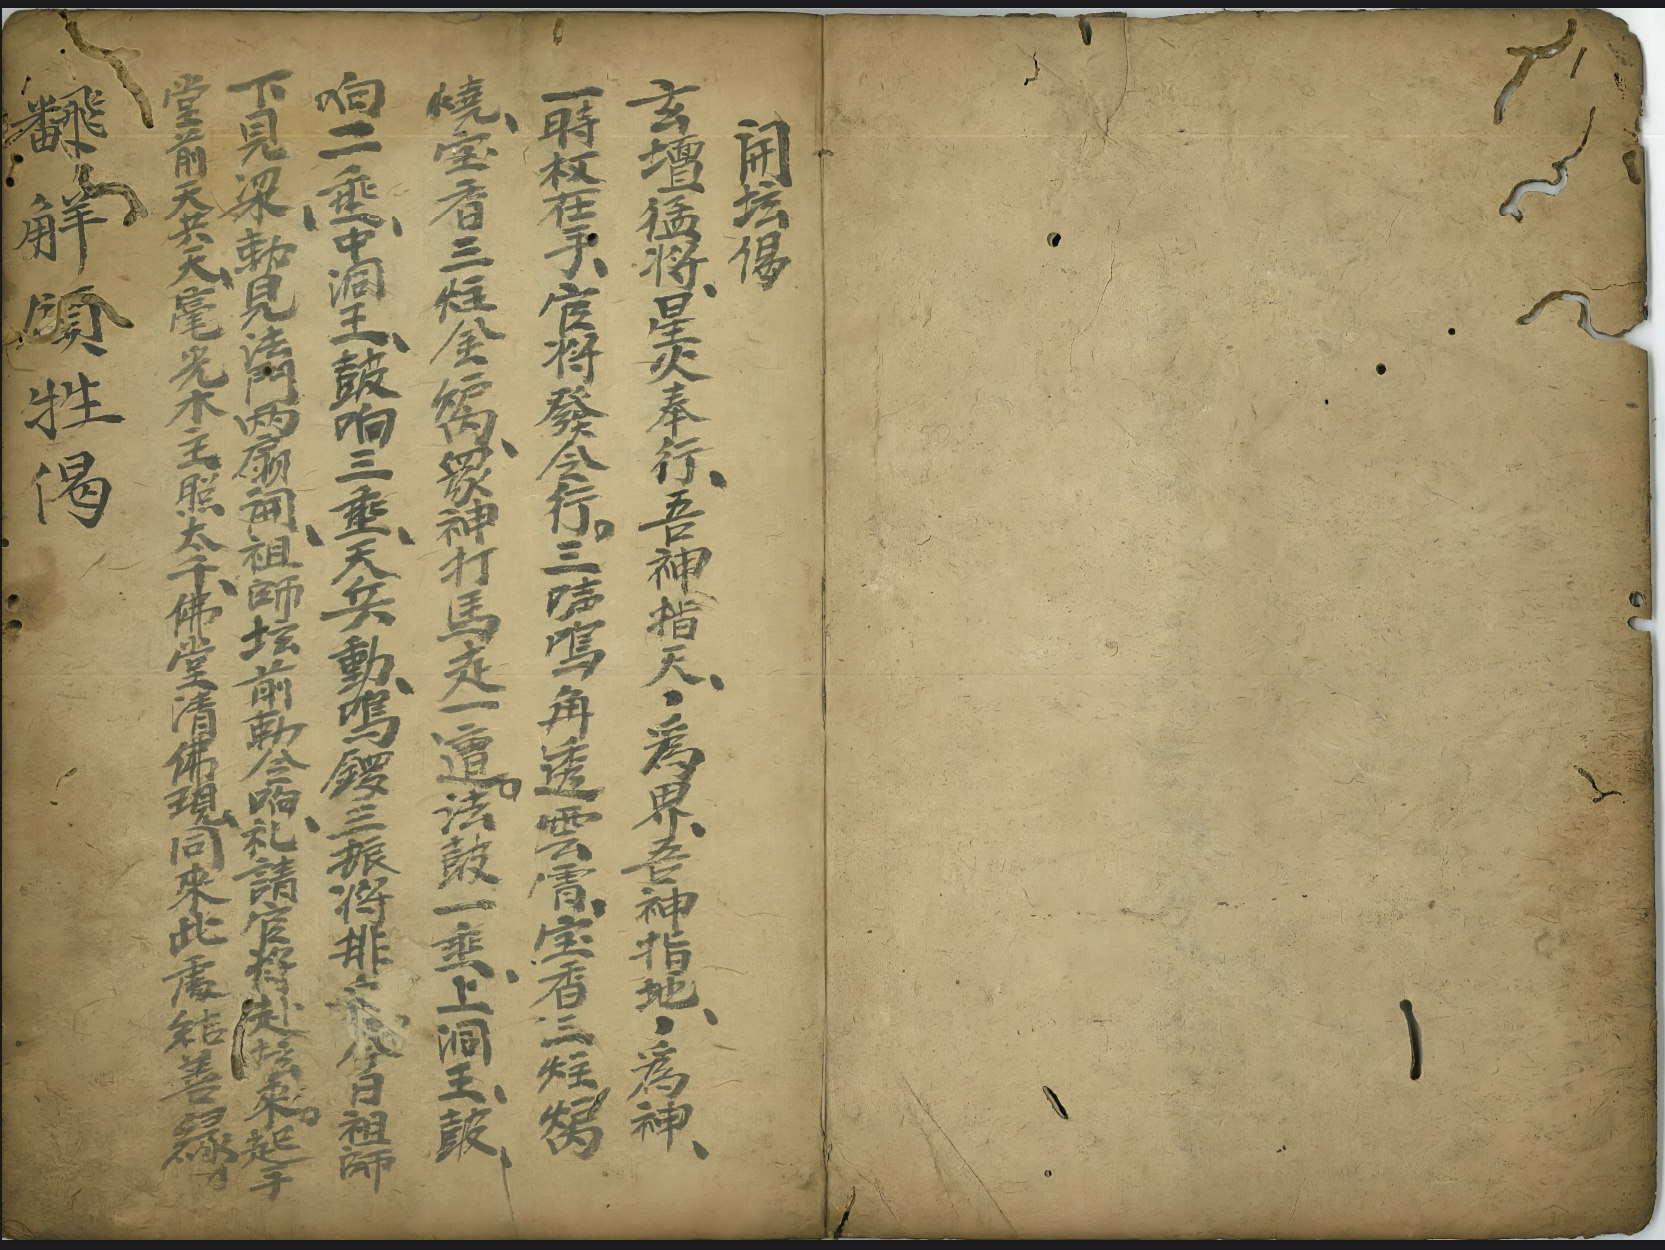 開坛偈
玄壇猛将、星火奉行、吾神指天、為界、吾神指地、為神、
一時权在手、官将發令行。三声鳴角透雲霄、宝香三炷焫
燒、宝香三炷金炉焫、眾神打馬走一遭。法鼓一垂、上洞王、鼓
响二垂、中洞王、鼓响三垂、天兵動、鳴鑼三振将排 今日祖師
下見梁、勅見法門两扇開、祖師坛前勅令响、礼請官将赴坛來。起手
堂前天共天、毫光水主照太子、佛堂清佛現、同來此處結善緣
飜解領牲偈